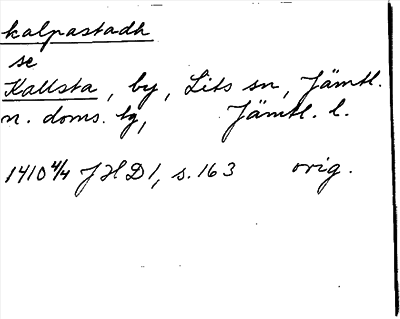 kalpastadh
se
Kallsta, by, Lits sn, Jämtl.
n. doms. tg, Jämtl. l.
1410 4/4 JHD 1, s. 163 orig.